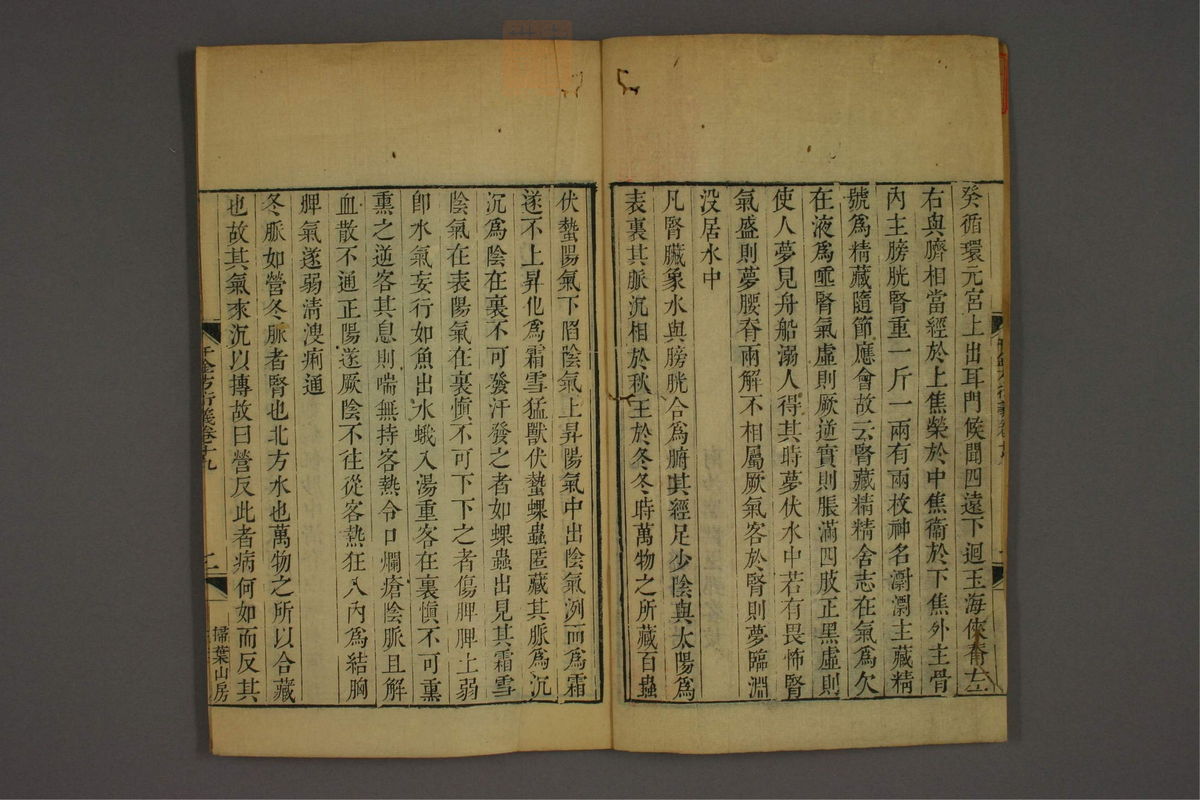 癸循環元宮上出耳門候聞四遠下迴玉海俠脊左
右與臍相當經於上焦榮於中焦衞於下焦外主骨
內主膀胱腎重一斤一兩有兩枚神名𣽂𣽂主藏精
號爲精藏隨節應會故云腎藏精精舍志在氣爲欠
在液爲唾腎氣虛則厥逆實則脹滿四肢正黑虛則
使人夢見舟船溺人得其時夢伏水中若有畏怖腎
氣盛則夢腰脊兩解不相屬厥氣客於腎則夢臨淵
没居水中
凡腎臟象水與膀胱合爲腑其經足少陰與太陽爲
表裏其脈沉相於秋王於冬冬時萬物之所藏百蟲
伏蟄陽氣下陷陰氣上昇陽氣中出陰氣冽而爲霜
遂不上昇化爲霜雪猛獸伏蟄蜾蟲匿藏其脈爲沉
沉爲陰在裏不可發汗發之者如蜾蟲出見其霜雪
陰氣在表陽氣在裏愼不可下下之者傷脾脾土弱
卽水氣妄行如魚出水蛾入湯重客在裏愼不可熏
熏之逆客其息則喘無持客熱令口爛瘡陰脈且解
血散不通正陽遂厥陰不往從客熱狂入內爲結胸
脾氣遂弱清溲痢通
冬脈如營冬脈者腎也北方水也萬物之所以合藏
也故其氣來沉以搏故曰營反此者病何如而反其
千金方衍義卷十九
二
掃葉山房